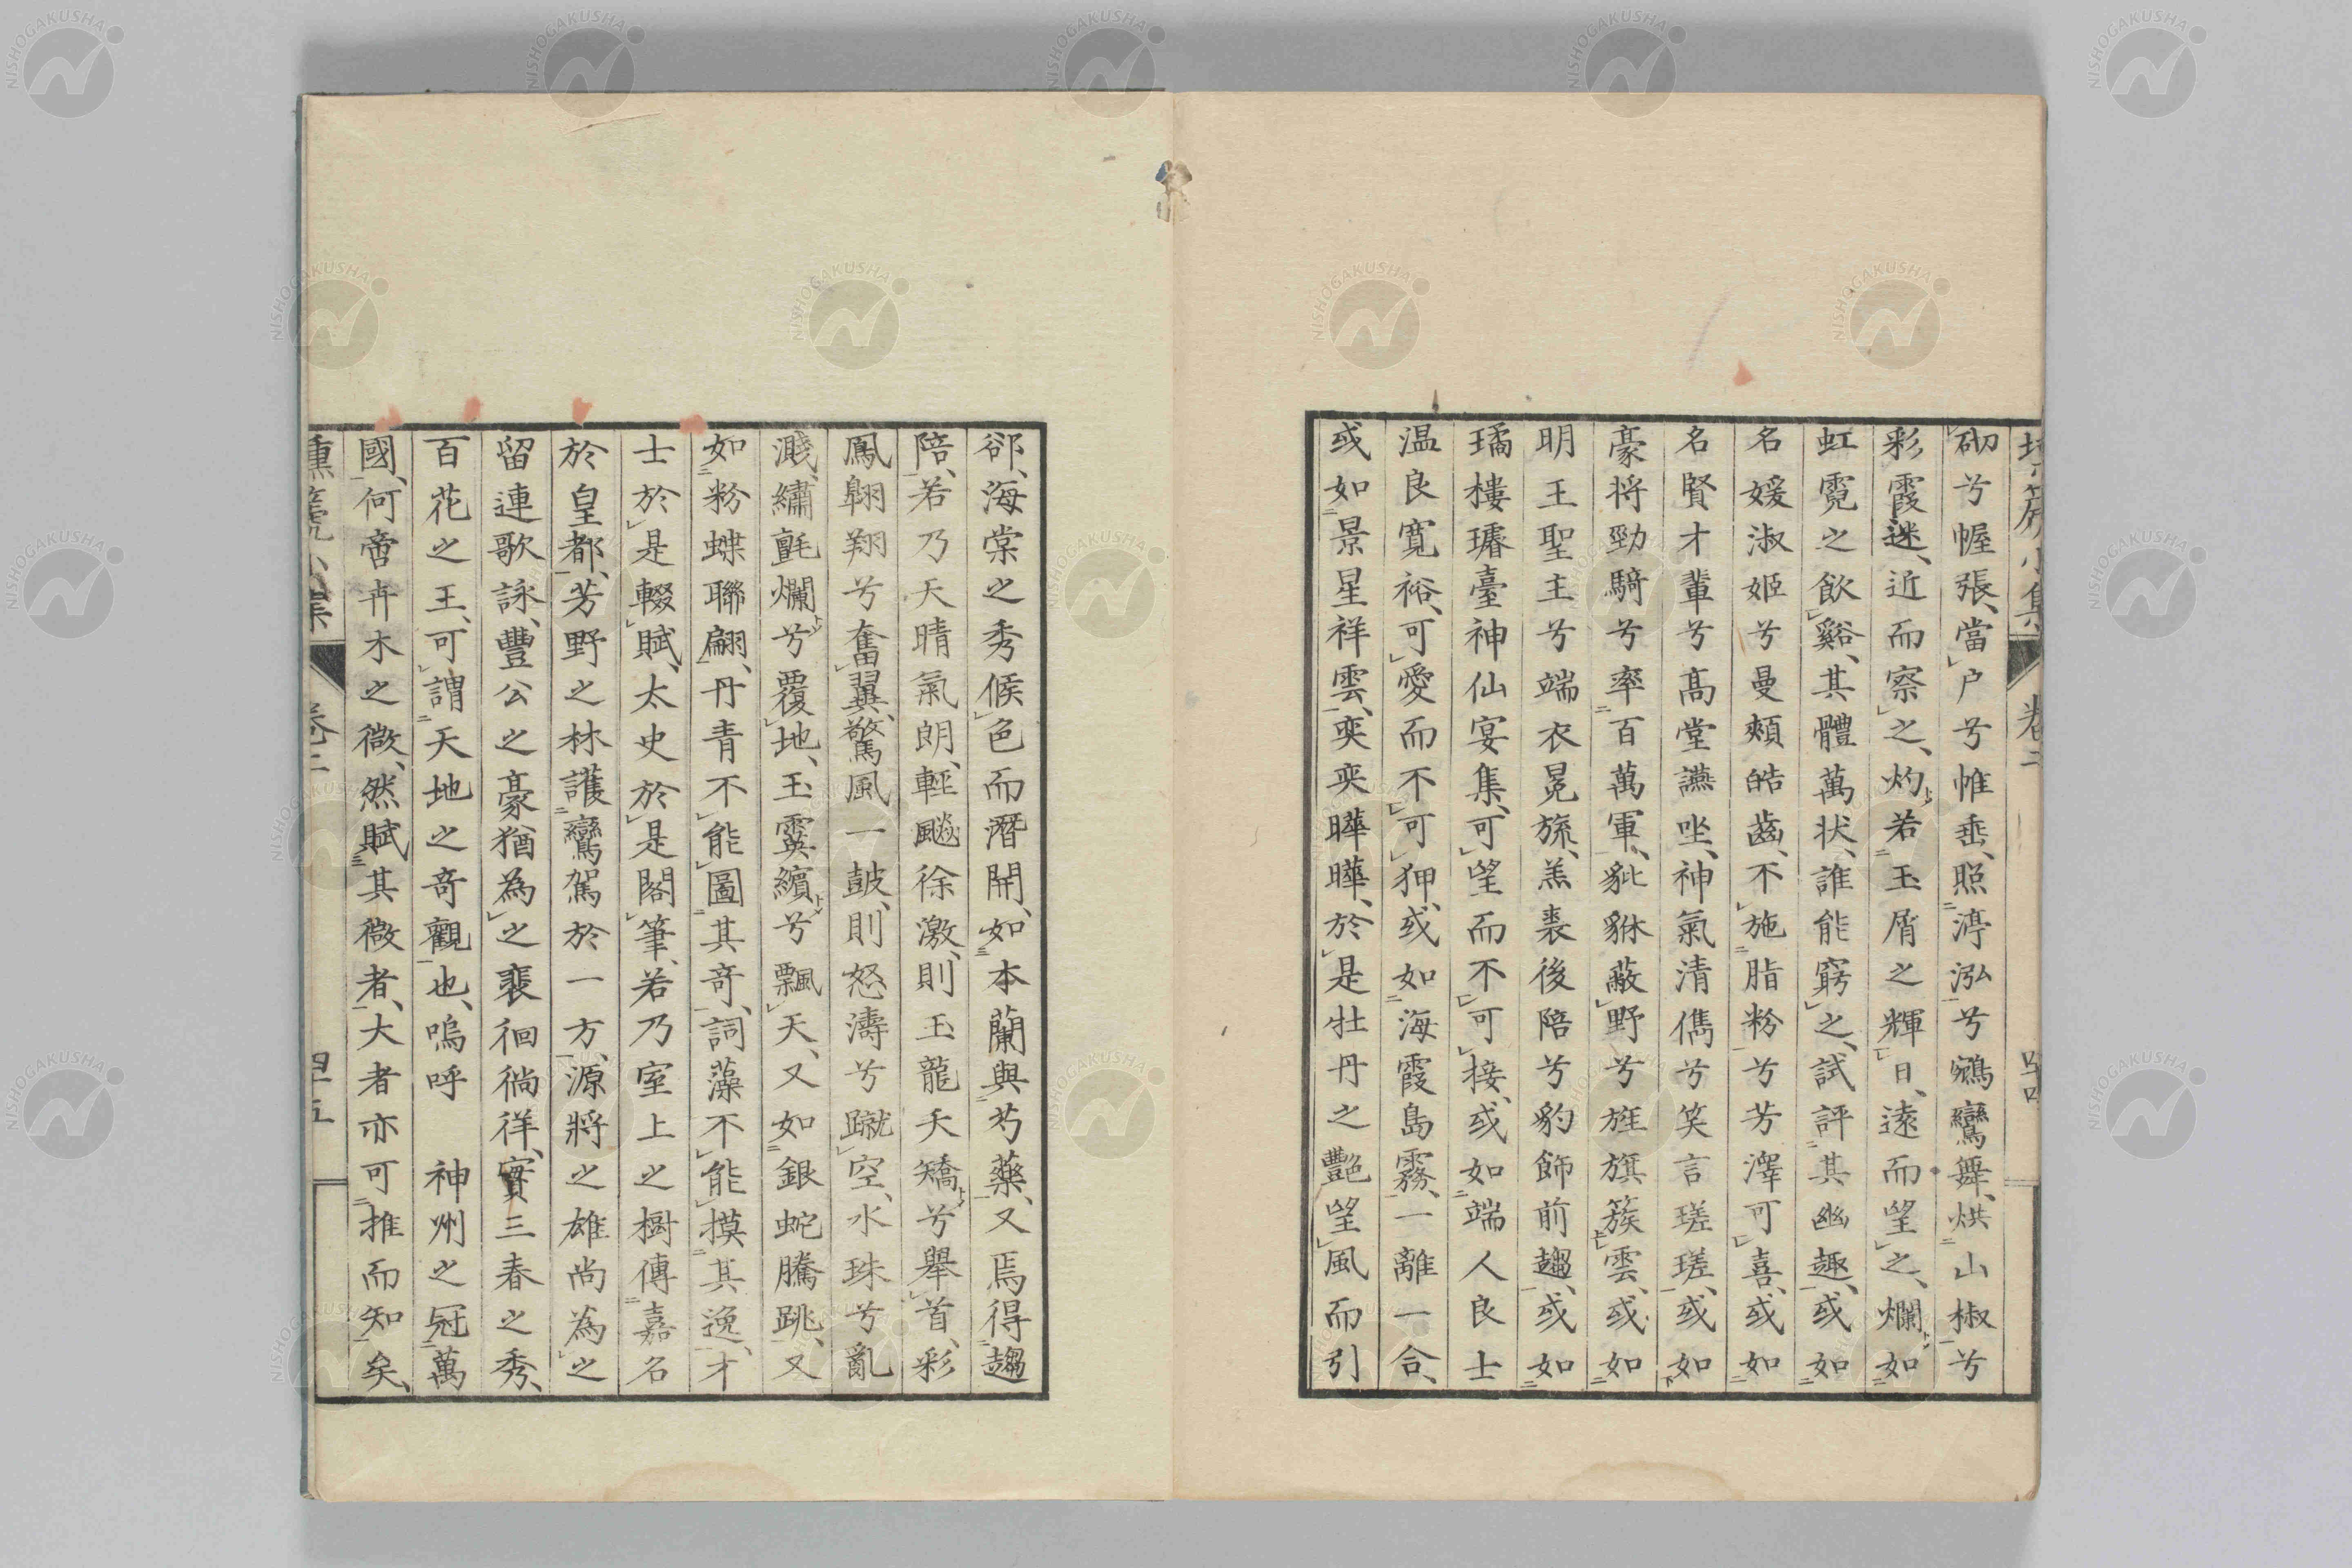 砌兮幄張、當戶兮帷垂、照渟泓兮鵷鸞舞、烘山椒兮
彩霞迷、近而察之、灼若玉屑之輝日、遠而望之、爛如
虹霓之飲谿、其體萬状、誰能窮之、試評其幽趣、或如
名媛淑姬兮曼頰皓齒、不施脂粉兮芳澤可喜、或如
名賢才輩兮高堂讌坐、神氣清儁兮笑言瑳瑳、或如
豪將勁騎兮率百萬軍、豼貅蔽野兮旌旗簇雲、或如
明王聖主兮端衣冕旒、羔裘後陪兮豹飾前趨、或如
璚樓璿臺神仙宴集、可望而不可接、或如端人良士
温良寬裕、可愛而不可狎、或如海霞島霧、一離一合、
或如景星祥雲、奕奕曄曄、於是牡丹之艷望風而引
郤、海棠之秀候色而潛開、如本蘭與芍藥、又焉得趨
陪、若乃天晴氣朗、輕颷徐激、則玉龍夭矯兮舉首、彩
鳳翺翔兮奮翼、驚風一鼓、則怒濤兮蹴空、水珠兮亂
濺、繡氈爛兮覆地、玉霙繽兮飄天、又如銀蛇騰跳、又
如粉蝶聯翩、丹青不能圖其奇、詞藻不能摸其逸、才
士於是輟賦、太史於是閣筆、若乃室上之樹傳嘉名
於皇都、芳野之林護鸞駕於一方、源將之雄尚為之
留連歌詠、豐公之豪猶為之裴徊徜徉、實三春之秀、
百花之王、可謂天地之奇觀也、嗚呼 神州之冠萬
國、何啻卉木之微、然賦其微者、大者亦可推而知矣、
小集 卷二 四十五